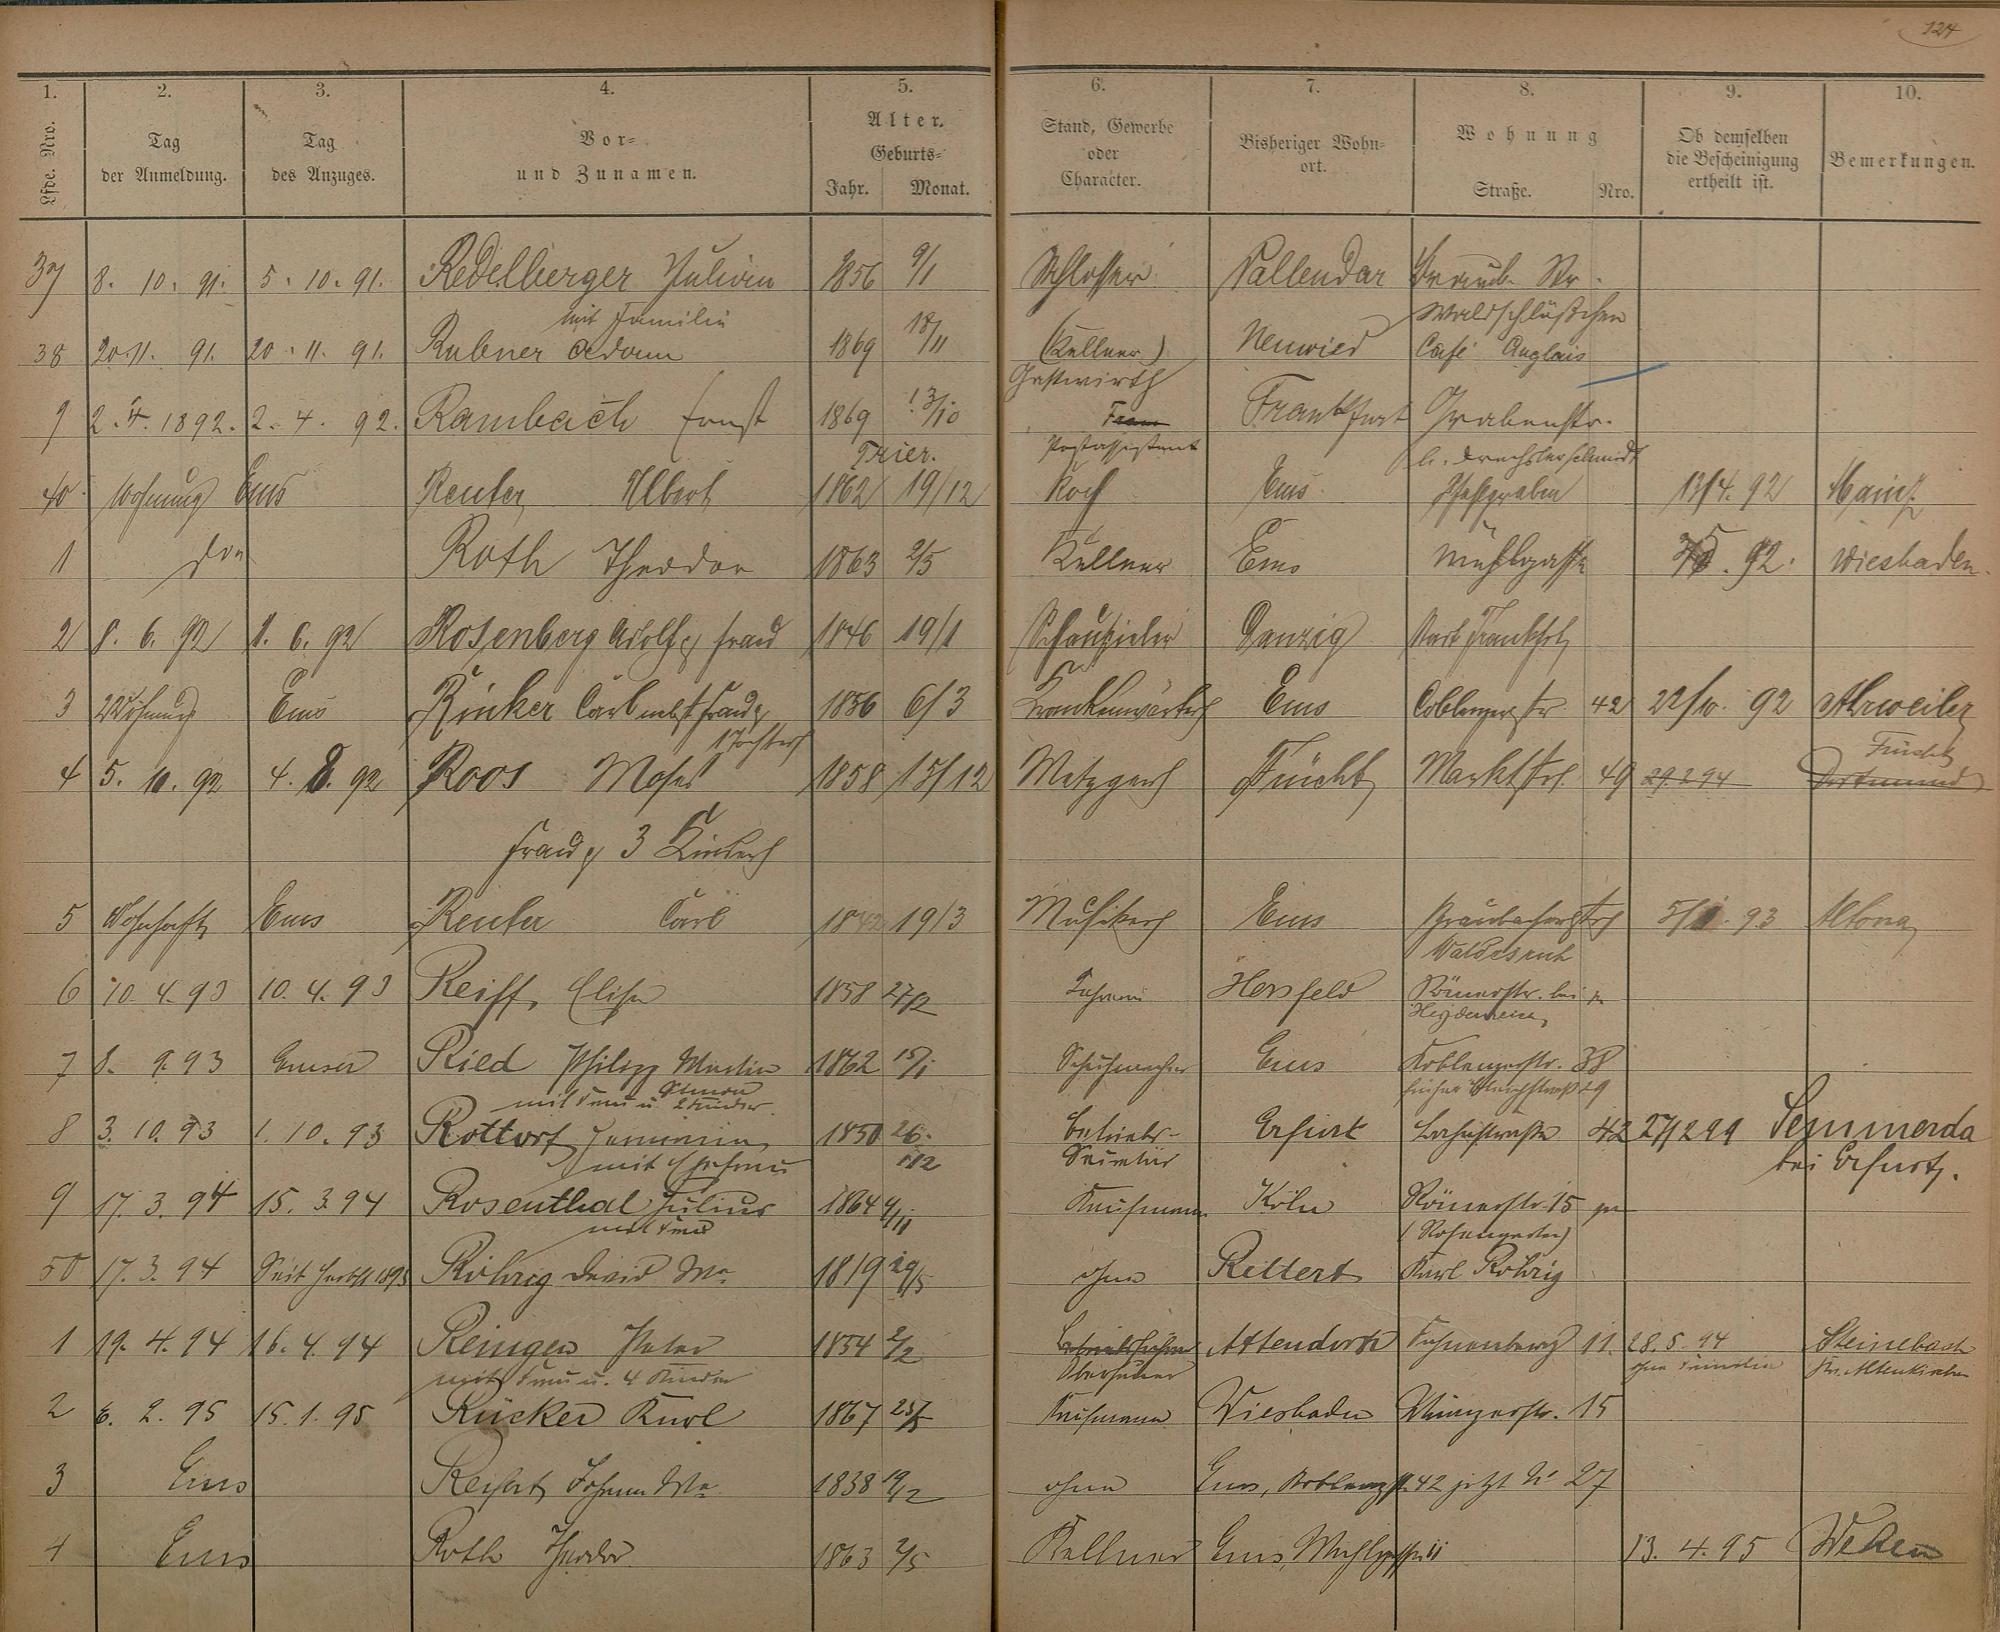 124
1. 2. 3. 4. 5. 6. 7. 8. 9. 10.
Lfde. Nro. Tag der Anmeldung. Tag des Anzuges. Vor- und Zunamen. Alter. Geburts- Jahr. Monat. Stand, Gewerbe oder Character. Bisheriger Wohnort. Wohnung Straße. Nro. Ob demselben die Bescheinigung ertheilt ist. Bemerkungen.
37 8. 10. 91. 5. 10. 91. Redelberger 1856 9/1 Schlosser Vallendar Braub. Str.
mit Familie Waldschlößchen
38 20.11. 91. 20. 11. 91. Rubner Adam 1869 18/11 (Kellner) Neuwied Café Anglais
Gastwirth
9 2.4.1892. 2. 4. 92. Rambach Ernst 1869 13/10 Frankfurt Grabenstr.
Trier. Postassistent
40 Wohnung Ems Reuter Albert 1862 19/12 Koch Ems Pfahlgraben 13/4. 92 Mainz
1 Roth Theodor 1863 2/5 Kellner Ems Mühlgasse 92. Wiesbaden.
2 8. 6. 92 1. 6. 92 Rosenberg Adolf & Frau 1846 19/1 Schauspieler Danzig Stadt
3 Wohnung Ems Rinker Carl nebst Frau & 1856 6/3 Krankenwärter Ems Coblenzerstr 42 22/10. 92 Ahrweiler
1 Tochter Frücht
4 5. 10. 92 4. 8. 92 Roos Moses 1858 15/12 Metzger Frücht Marktstr. 49 29.2.94 Dortmund
Frau & 3 Kinder
5 Wohnhaft Ems Reuter Carl 19/3 Musiker Ems Braubacherstr 93 Altona
Waldesruh
6 10. 4. 93 10. 4. 93 Reiff, Elise 1858 27/2 Hersfeld Römerstr. bei
7 8. 9. 93 Emser Ried Philipp Martin 1862 15/1 Schuhmacher Ems Koblenzerstr. 38
mit Frau u. 2 Kinder
8 3. 10. 93 1. 10. 93 Rottorf 1850 26. Betriebs- Erfurt Bahnstraße 42 27/2 99 Semmerda
mit Ehefrau 112 Secretär bei Erfurt.
9 17. 3. 94 15. 3. 94 Rosenthal Julius 1864 4/11 Kaufmann Köln Römerstr. 15
mit Frau
50 17. 3. 94 Seit Herbst 1893 Röhrig David Wr. 1819 29/5 ohne Rettert Karl Röhrig
1 19. 4. 94 16. 4. 94 Reingen Peter 1854 2/2 Attendorn Fahnenberg 11. 28. 5. 94 Steinebach
mit Frau u. 4 Kinder ohne Familie Kr. Altenkirchen
2 6. 2. 95 15. 1. 95 Rücker Karl 1867 Kaufmann Wiesbaden Mainzerstr. 15
3 Ems Johann Wr. 1838 19/2 ohne Ems, Koblenzstr. 42 jetzt No 27
4 Ems Roth Theodor 1863 2/5 Kellner Ems, Mühlgasse 11 13. 4. 95